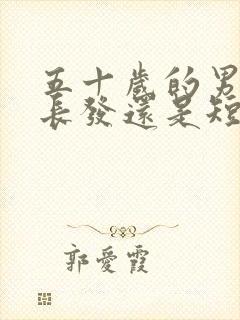 五十歲的男
長發還是短
郭愛霞